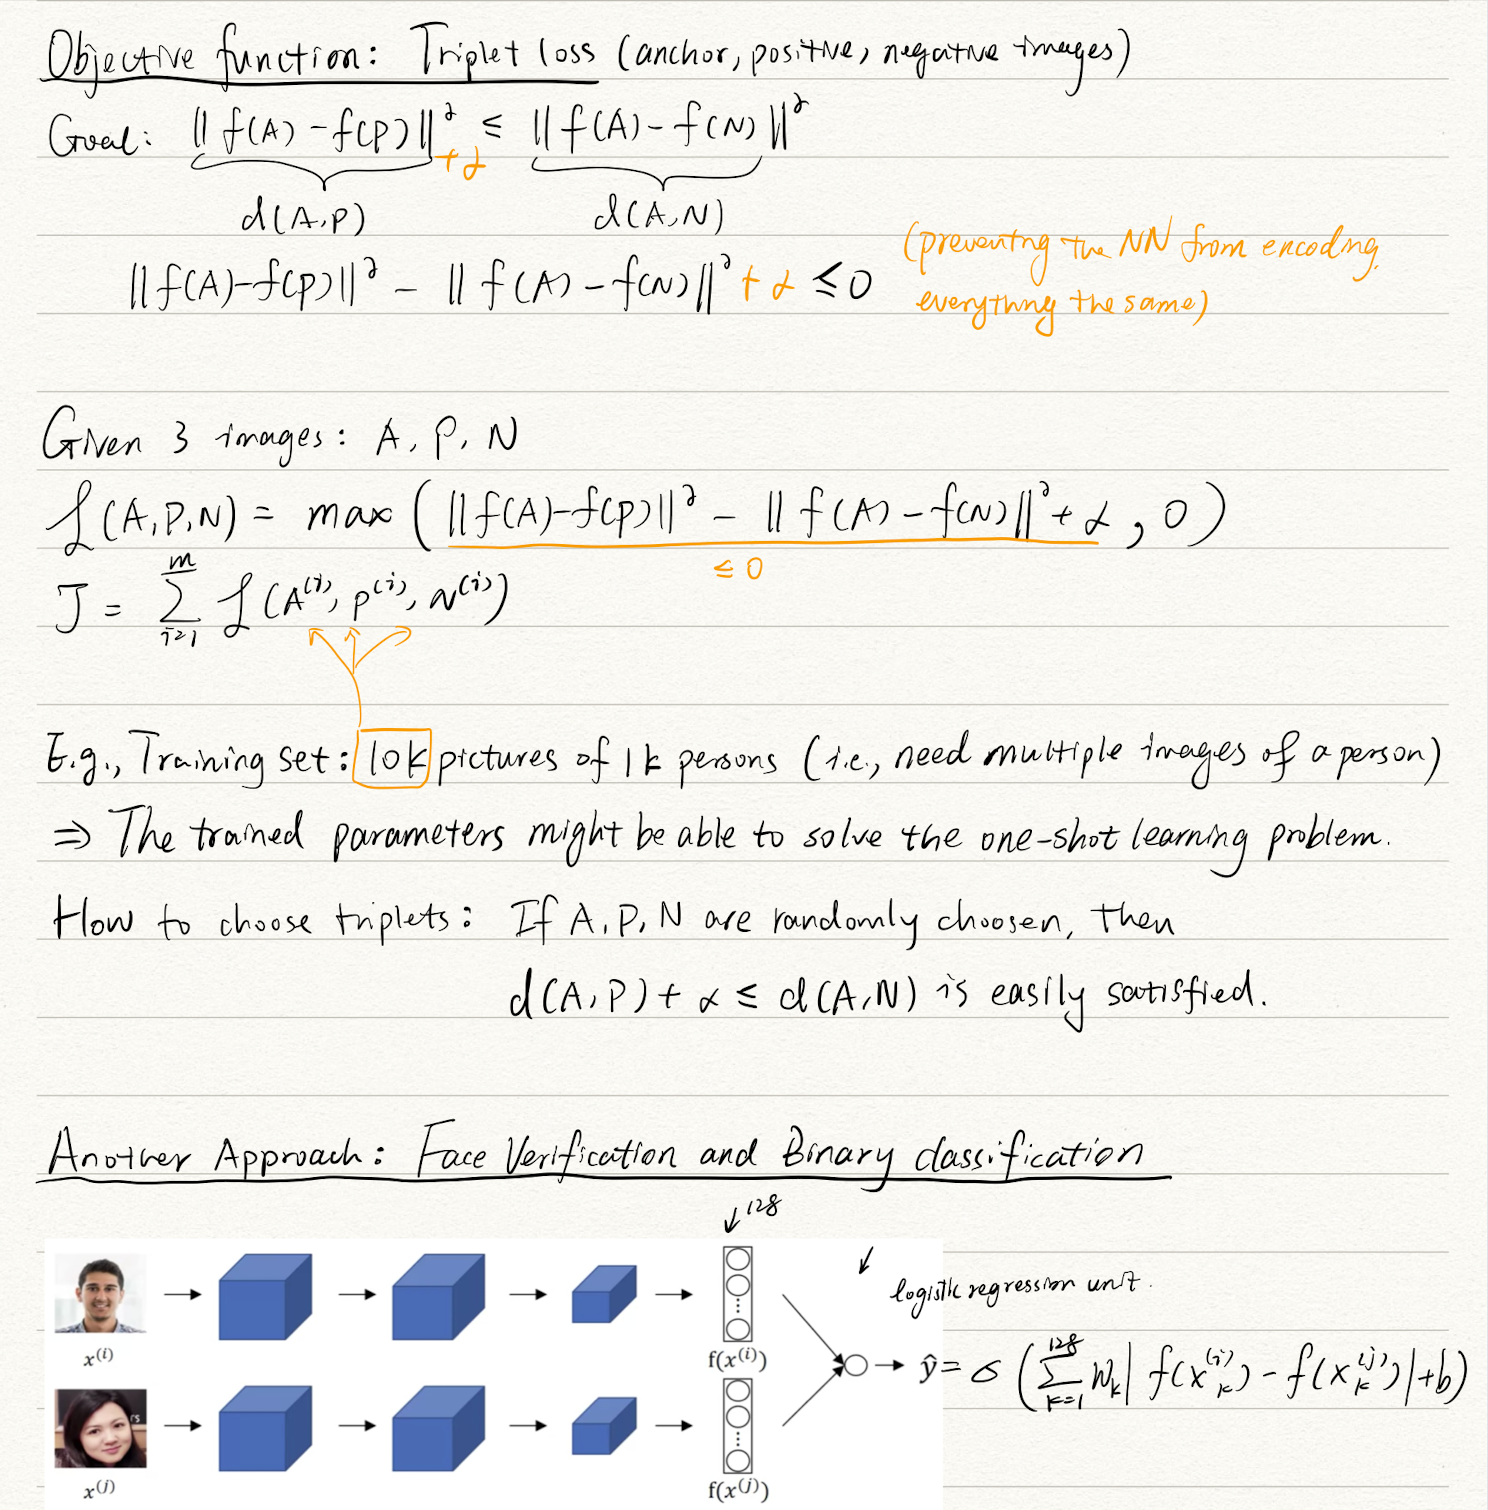 Objective function: Triplet loss (anchor, positive, negative images)
Goal: ||f(A) - f(P)||² + α ≤ ||f(A) - f(N)||²
d(A,P) d(A,N)
(preventing the NN from encoding
everything the same)
||f(A)-f(P)||² - ||f(A) - f(N)||² + α ≤ 0
Given 3 images: A, P, N
ℒ(A,P,N) = max(||f(A)-f(P)||² - ||f(A) - f(N)||² + α, 0)
≤ 0
J = Σ_{i=1}^{m} ℒ(A^{(i)}, P^{(i)}, N^{(i)})
E.g., Training set: 10k pictures of 1k persons (i.e., need multiple images of a person)
⇒ The trained parameters might be able to solve the one-shot learning problem.
How to choose triplets: If A, P, N are randomly choosen, then
d(A,P) + α ≤ d(A,N) is easily satisfied.
Another Approach: Face Verification and Binary classification
↓128
↓ logistic regression unit.
x^{(i)} f(x^{(i)})
ŷ = σ(Σ_{k=1}^{128} W_k |f(x^{(i)}_k) - f(x^{(j)}_k)| + b)
x^{(j)} f(x^{(j)})